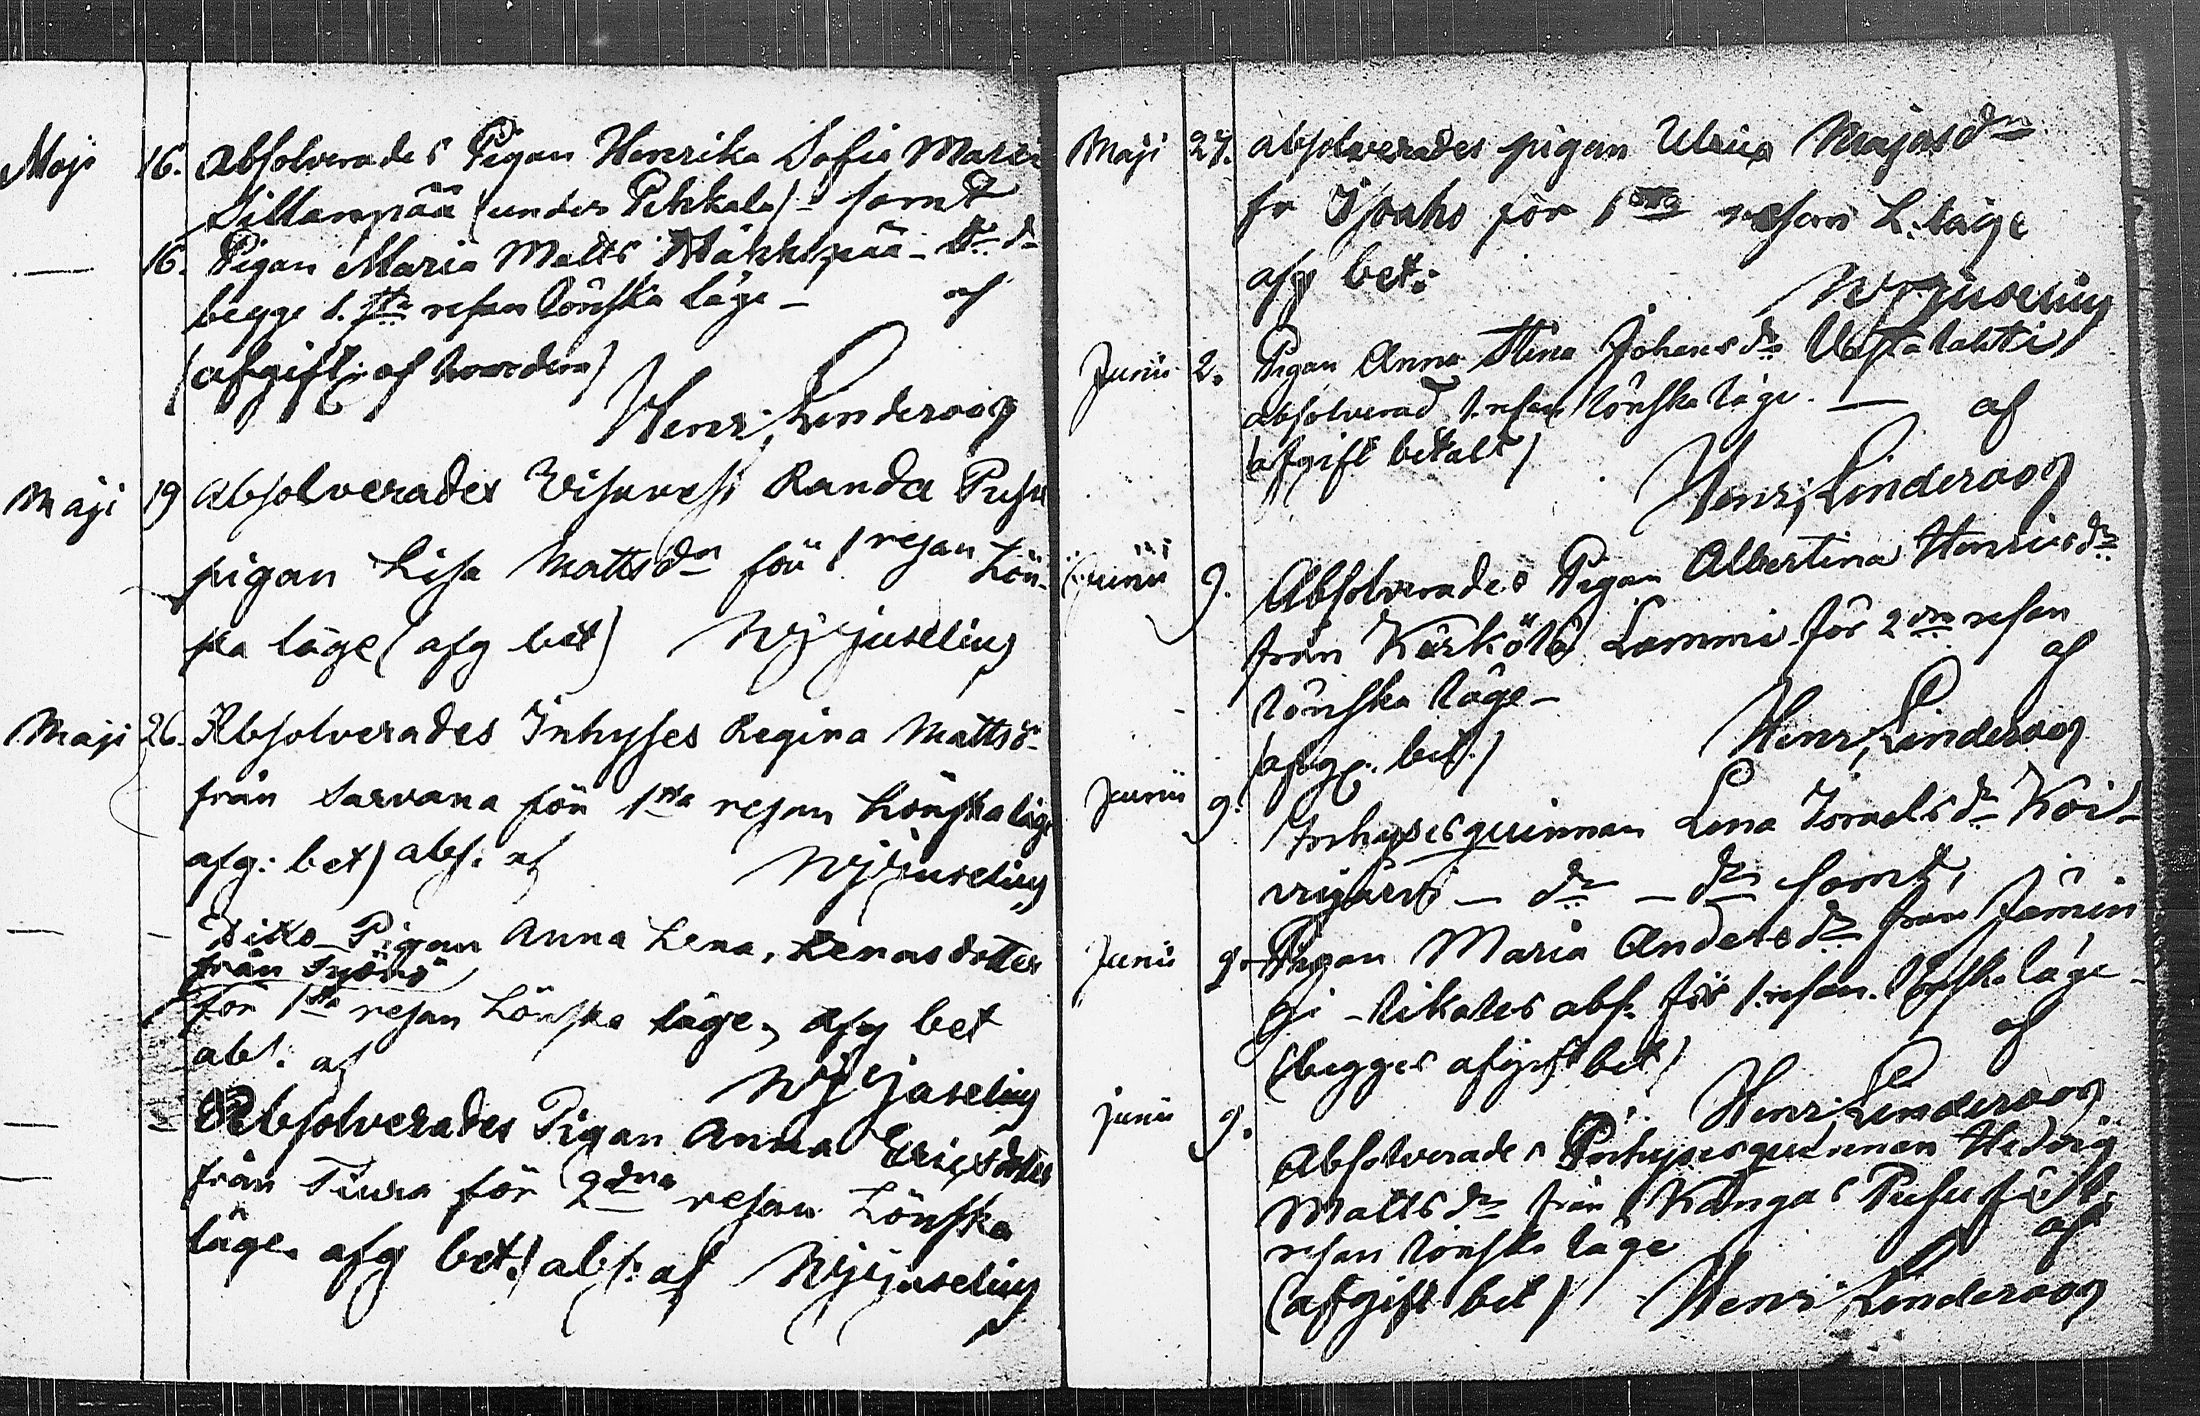 Maji 16. Absolverades Pigan Henrika Sofia Maria
Sillanpää (under Pehkala) - samt
— 16. Pigan Maria Matts - dr d:o
begge 1. sta resan lönska läge — af
(afgift. af vardera)
Henr; Linderoos
Maji 19 Absolverades Randa Pusu
pigan Lisa Mattsdr för 1 resan Lön-
ska läge (afg bet) Wjljuselius
Maji 26. Absolverades Inhyses Regina Mattsd
från Sarvana för 1sta resan Lönska läge
afg: bet) abs: af Wjljuselius
— - Dito Pigan Anna Lena, Lenasdotter
från
för 1sta resan Lönska läge, afg bet
abs: af
Wjljuselius
— - Absolverades Pigan Anna Ericsdotter
— från Tiura för 2dra resan Lönska
läge. afg bet.) abs: af Wjljuselius
Maji 27. absolverades pigan Ulrica Majasdr
fr för 1sta resan L: läge
afg bet:
Wjljuselius
Junii 2. Pigan Anna Stina Johansdr
absolverad 1. resan lönska läge. — af
(afgift betalt)
Henr; Linderoos
Junii 9. Absolverades Pigan Albertina Henricsdr
från Kärkölä Lammi för 2dra resan
lönska läge — af
(afg. bet.) Henr; Linderoos
Junii 9. Inhysesquinnan Lena Israelsdr Koi-
vujärvi — do — do samt,
Junii 9. Pigan Maria Andersdr från Jämin
gi - likales abs. för 1. resan. Lönska läge -
(begges afgift bet) af
Henr; Linderoos
junii 9. Absolverades Inhysesquinnan Hedvig
Mattsdr från Kangas Pusu för 1.
resan lönska läge af
(afgift bet) Henr; Linderoos